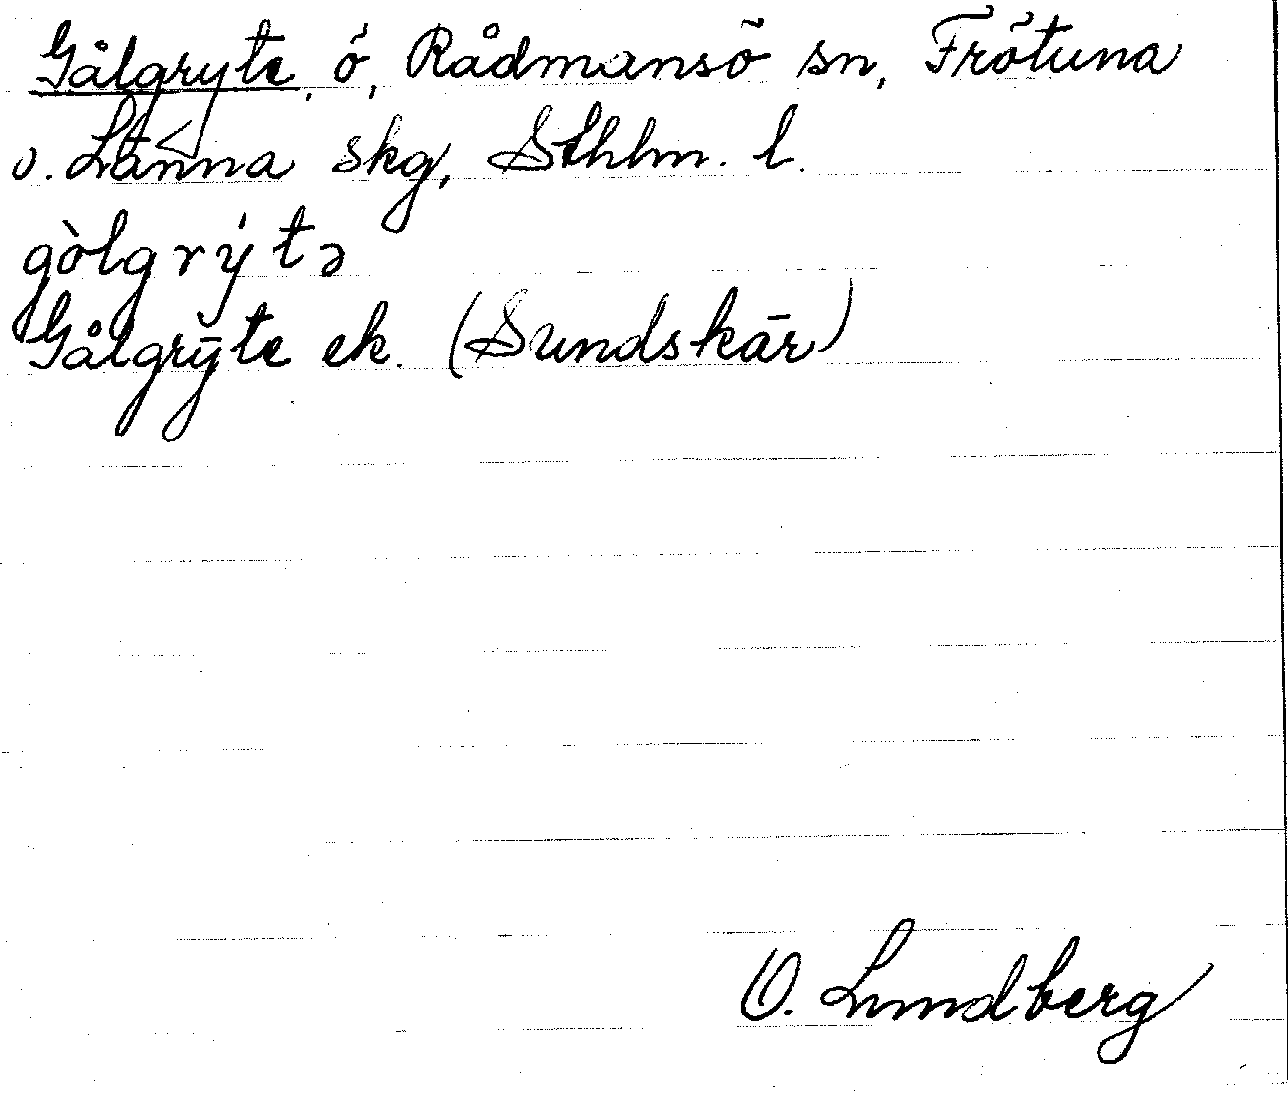 Gålgryte, ö, Rådmansö sn, Frötuna
o. Länna skg, Sthlm. l.
gòlgrýtə
Gålgryte ek. (Sundskär)
O. Lundberg